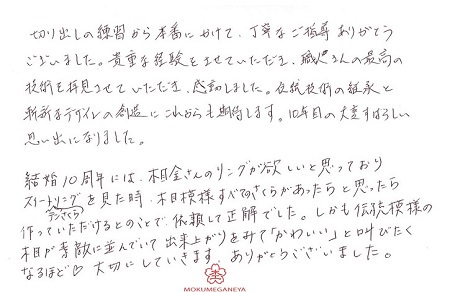 切り出しの練習から本番にかけて、丁寧なご指導ありがとう
ございました。貴重な経験をさせていただき、職人さんの最高の
技術を拝見させていただき、感動しました。伝統技術の継承と
斬新なデザインの創造にこれからも期待します。10年目の大変すばらしい
思い出になりました。
結婚10周年には、杢金さんのリングが欲しいと思っており
スイートリングを見た時、木目模様すべてさくらがあったらと思ったら
作っていただけるとのことで、依頼して正解でした。しかも伝統模様の
木目が素敵に並んでいて出来上がりをみて「かわいい」と叫びたく
なるほど♡ 大切にしていきます。ありがとうございました。
MOKUMEGANEYA